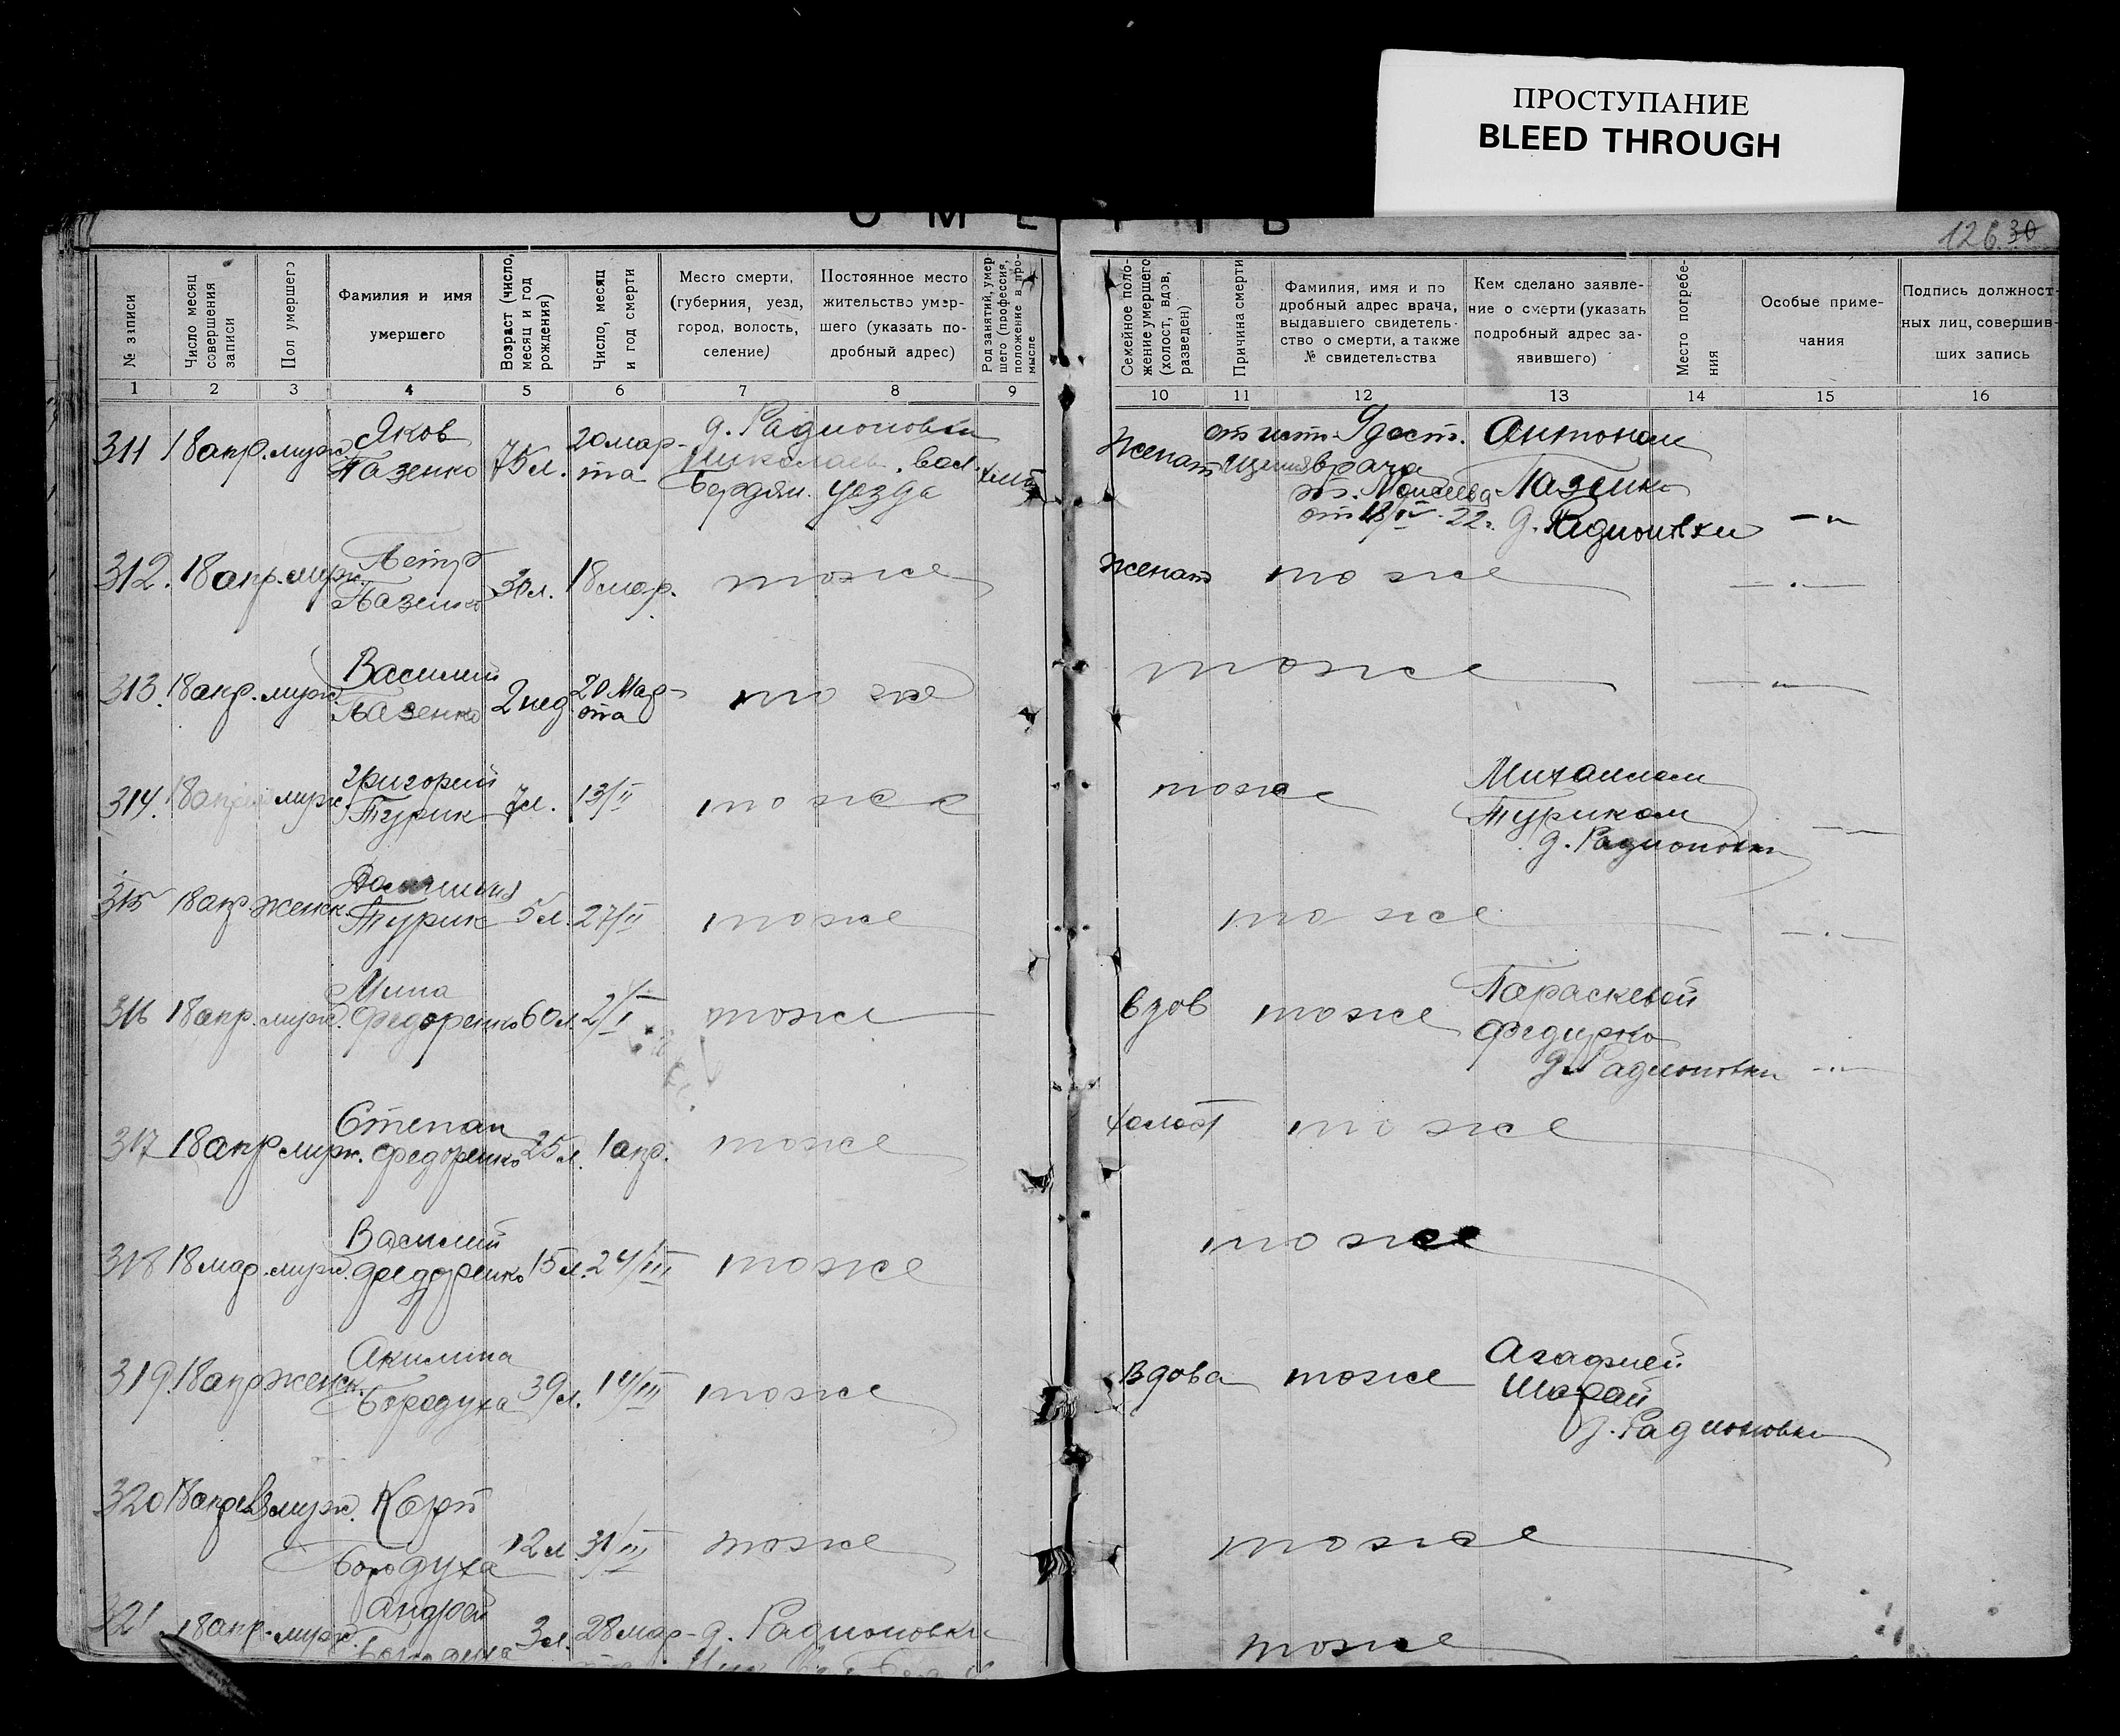 ПРОСТУПАНИЕ
BLEED THROUGH
126 30
№ записи
Число месяц совершения записи
Пол умершего
Фамилия и имя
умершего
Возраст (число, месяц и год рождения)
Число, месяц и год смерти
Место смерти,
(губерния, уезд,
город, волость,
селение)
Постоянное место
жительство умер-
шего (указать по-
дробный адрес)
Род занятий, умер
шего (профессия,
положение в про-
мысле
Семейное поло-
жение умершего
(холост, вдов,
разведен)
Причина смерти
Фамилия, имя и по
дробный адрес врача,
выдавшего свидетель-
ство о смерти, а также
№ свидетельства
Кем сделано заявле-
ние о смерти (указать
подробный адрес за-
явившего)
Место погребе-
ния
Особые приме-
чания
Подпись должност-
ных лиц, совершив-
ших запись
1 2 3 4 5 6 7 8 9 10 11 12 13 14 15 16
311 18 апр. муж. Яков Пазенко 75 л. 20 мар-
та д. Радионовки
Николаев. вол.
Бердян. уезда
Женат от ист-
щения Удост.
врача
от 18/IV 22 г. Антоном
Пазенко
д. Радионовки
312. 18 апр. муж. Петр
Пазенко 30 л. 18 мар. тоже Женат тоже
313. 18 апр. муж. Василий
Пазенко 2 нед 20 Мар-
та то же тоже
314. 18 апр муж. Григорий
Турик 7 л. 13/II тоже тоже Михаилом
Туриком
д. Радионовки
315 18 апр. женск.
Турик 5 л. 27/II тоже тоже
316 18 апр. муж. Мина
Федоренко 60 л. 2/I тоже вдов тоже Параскевой
Федирко
д. Радионовки
317 18 апр муж. Степан
Федоренко 25 л. 1 апр. тоже холост тоже
318 18 мар. муж. Василий
Федоренко 15 л. 24/III тоже тоже
319. 18 апр женск. Акилина
Бородуха 39 л. 14/III тоже Вдова тоже Агафией
Шарай
д. Радионовки
320 18 апреля муж. Карп
Бородуха 12 л 31/III тоже тоже
321. 18 апр. муж. Андрей
3 л. 28 мар- д. Радионовки
тоже